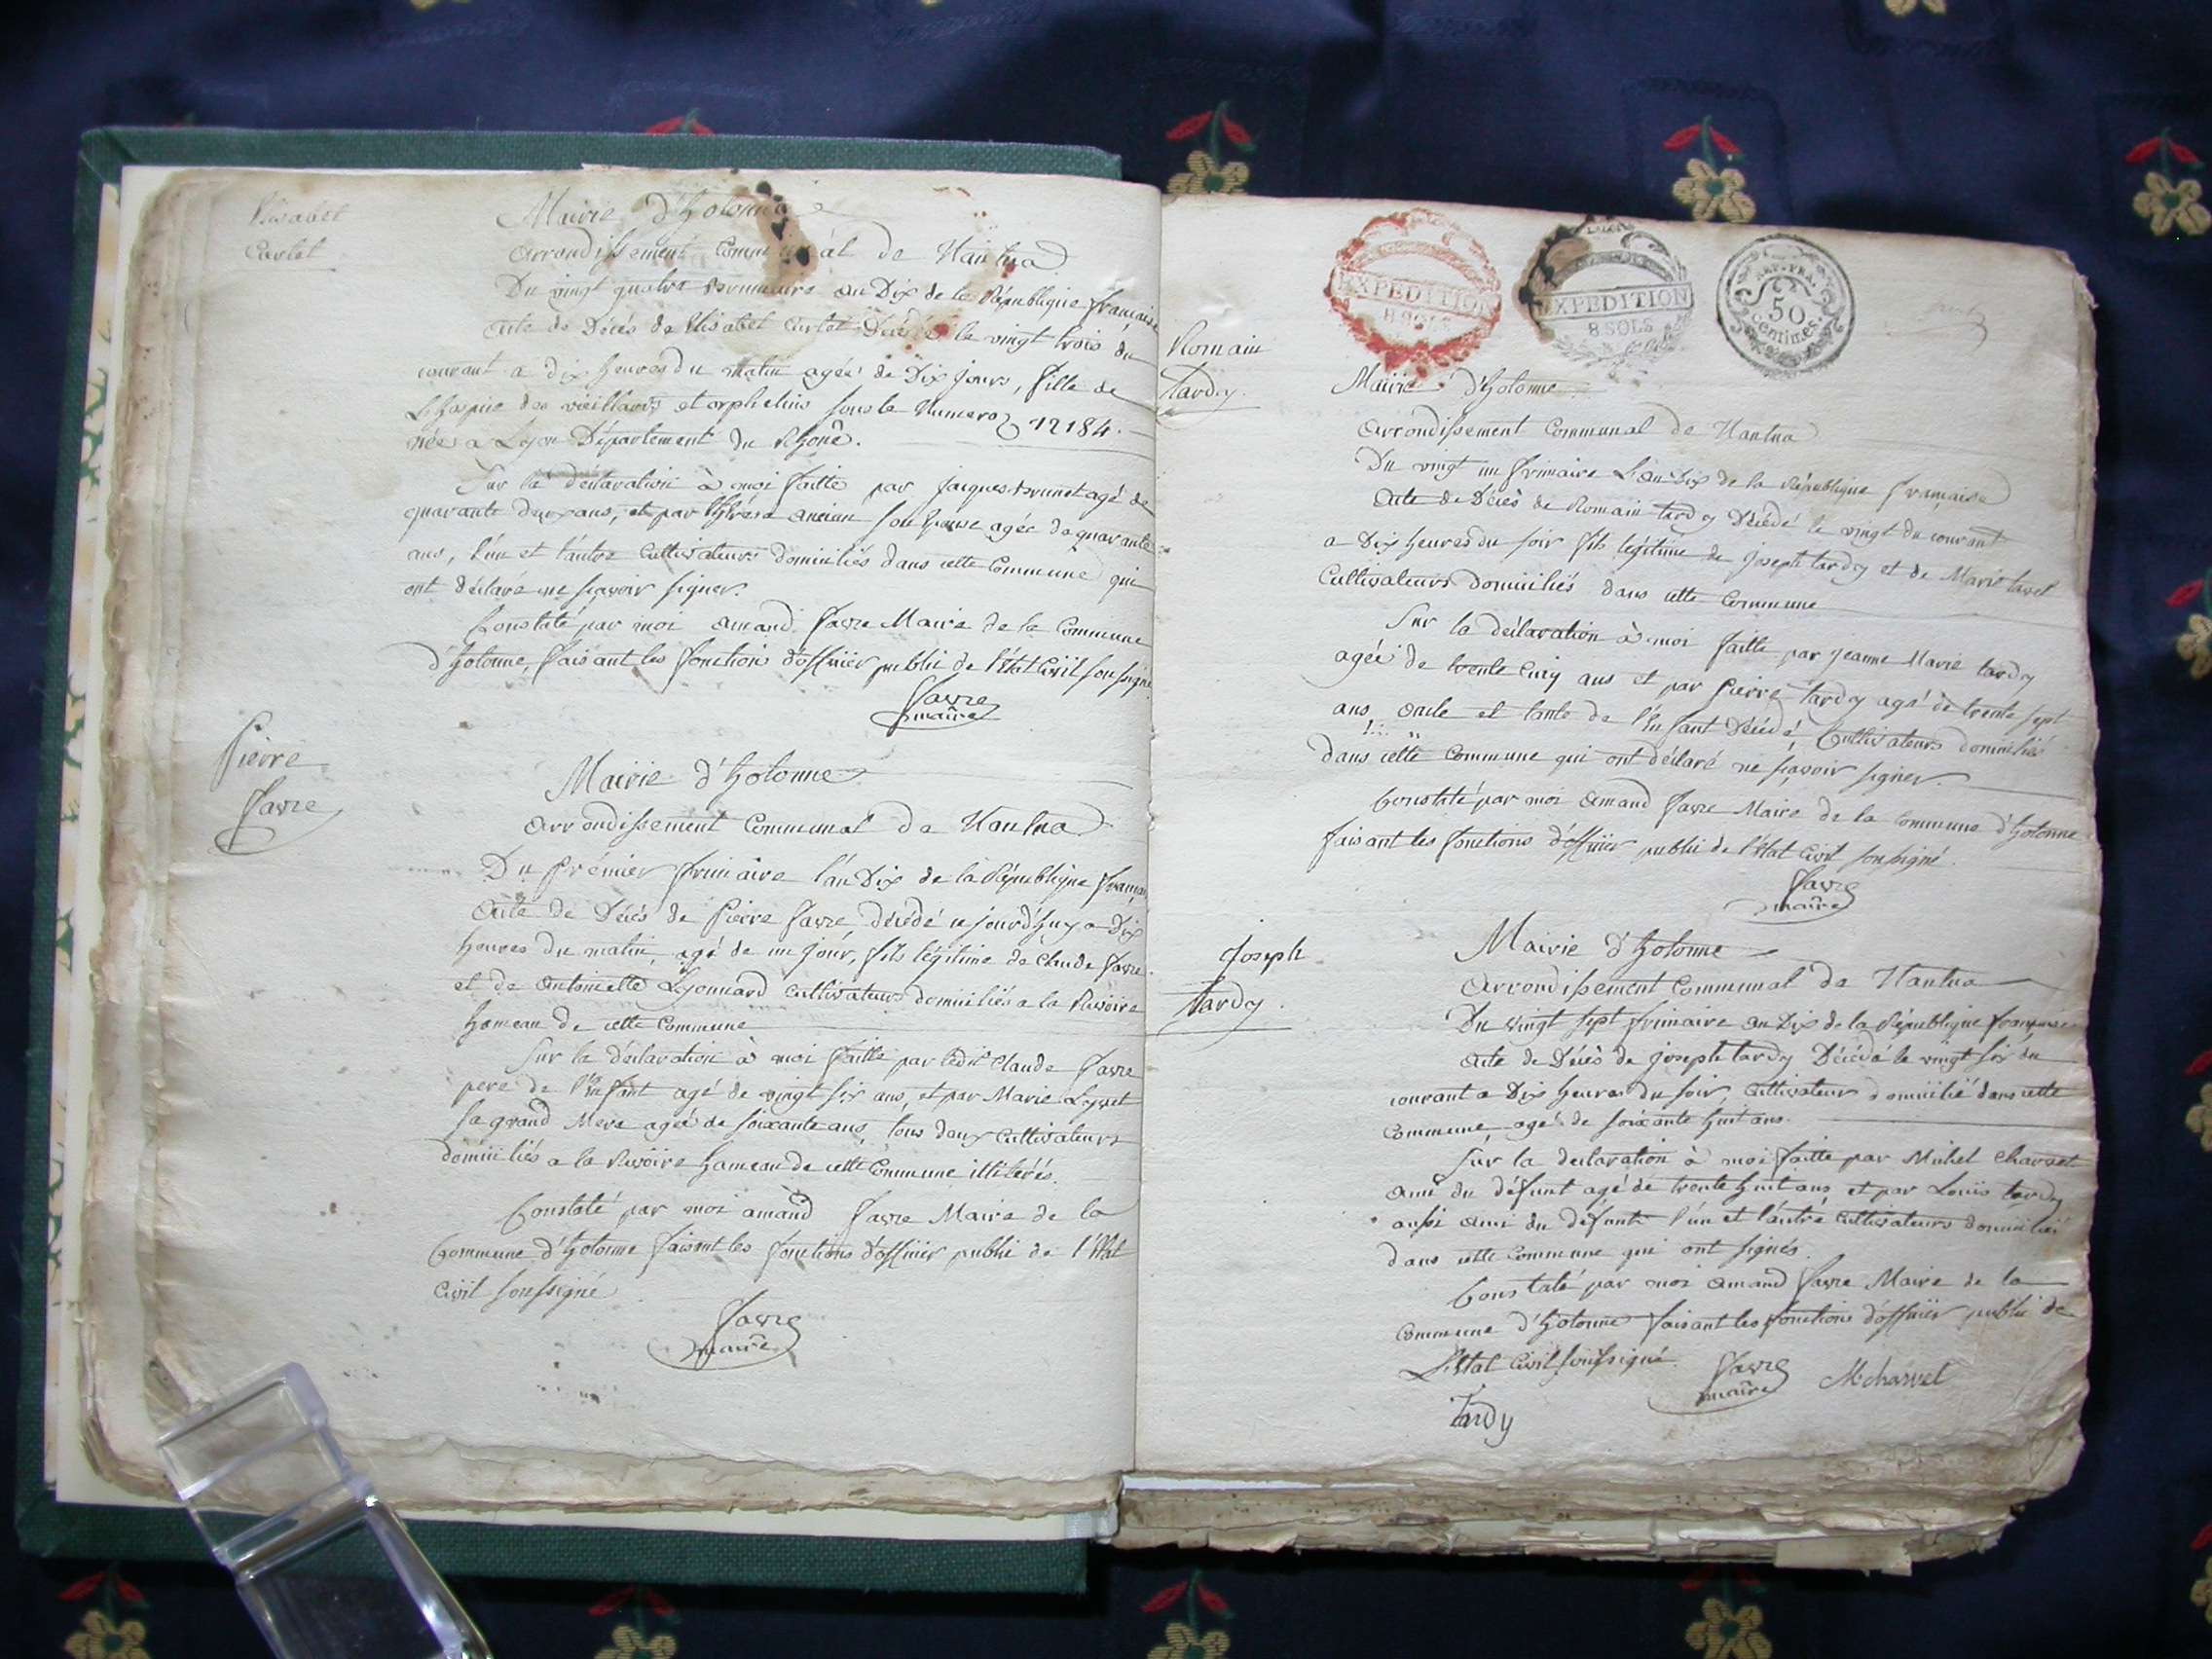 Elisabet
Carlet
Mairie d'hotonne
arrondissement communal de Nantua
Du vingt quatre Brumaire an Dix de la République française
acte de Décés de Elisabet Carlet Décédée le vingt trois du
courant a dix heures du matin agée de Dix jours, fille de
L'hospice des vieillards et orphelins sous le Numero 12184.
née a Lyon Département du Rhône.
Sur la déclaration à moi faitte par jacques Brunet agé de
quarante deux ans, et par ancian son Epouse agée de quarante
ans, l'un et l'autre cultivateurs domiciliés dans cette commune qui
ont déclaré ne sçavoir signer.
Constaté par moi amand favre Maire de la commune
d'hotonne, faisant les fonctions d'officier public de l'Etat civil soussigné
favre
maire
Pierre
favre
Mairie d'hotonne
arrondissement communal de Nantua
Du Prémier frimaire l'an Dix de la République
acte de Décés de Pierre favre, décédé ce jourd'huy a Dix
heures du matin, agé de un jour, fils légitime de Claude favre
et de antoinette Lyonnard cultivateurs domiciliés a la Rivoire
hameau de cette commune
Sur la déclaration à moi faitte par ledit Claude favre
pere de l'Enfant agé de vingt six ans, et par Marie
sa grand Mere agée de soixante ans, tous deux cultivateurs
domiciliés a la Rivoire hameau de cette commune illitérés.
Constaté par moi amand favre Maire de la
Commune d'hotonne faisant les fonctions d'officier public de l'Etat
civil soussigné
favre
maire
EXPEDITION
8 SOLS
EXPEDITION
8 SOLS
REP. FRA.
50
centimes.
Romain
tardy.
Mairie d'hotonne
arrondissement communal de Nantua
Du vingt un frimaire L'an Dix de la République française
acte de Décès de Romain tardy Décédé le vingt du courant
a Dix heures du soir fils légitime de joseph tardy et de Marie
Cultivateurs domiciliés dans cette commune
Sur la déclaration à moi faitte par jeanne Marie tardy
agée de trente cinq ans et par Pierre tardy agé de trente sept
ans, oncle et tante de l'Enfant Décédé, Cultivateurs domiciliés
dans cette commune qui ont déclaré ne sçavoir signer.
Constaté par moi amand favre Maire de la commune d'hotonne
faisant les fonctions d'officier public de l'Etat civil soussigné.
favre
maire
joseph
tardy.
Mairie d'hotonne
arrondissement communal de Nantua
Du vingt sept frimaire an Dix de la République française
acte de Décès de joseph tardy Décédé le vingt six du
courant a Dix heures du soir, cultivateur domicilié dans cette
commune, agé de soixante huit ans.
Sur la declaration à moi faitte par Michel charvet
ami du défunt agé de trente huit ans et par Louis tardy
aussi ami du defunt l'un et l'autre cultivateurs domiciliés
dans cette commune qui ont signés.
Constaté par moi amand favre Maire de la
commune d'hotonne faisant les fonctions d'officier public de
L'Etat civil soussigné.
favre
maire
M charvet
Tardy